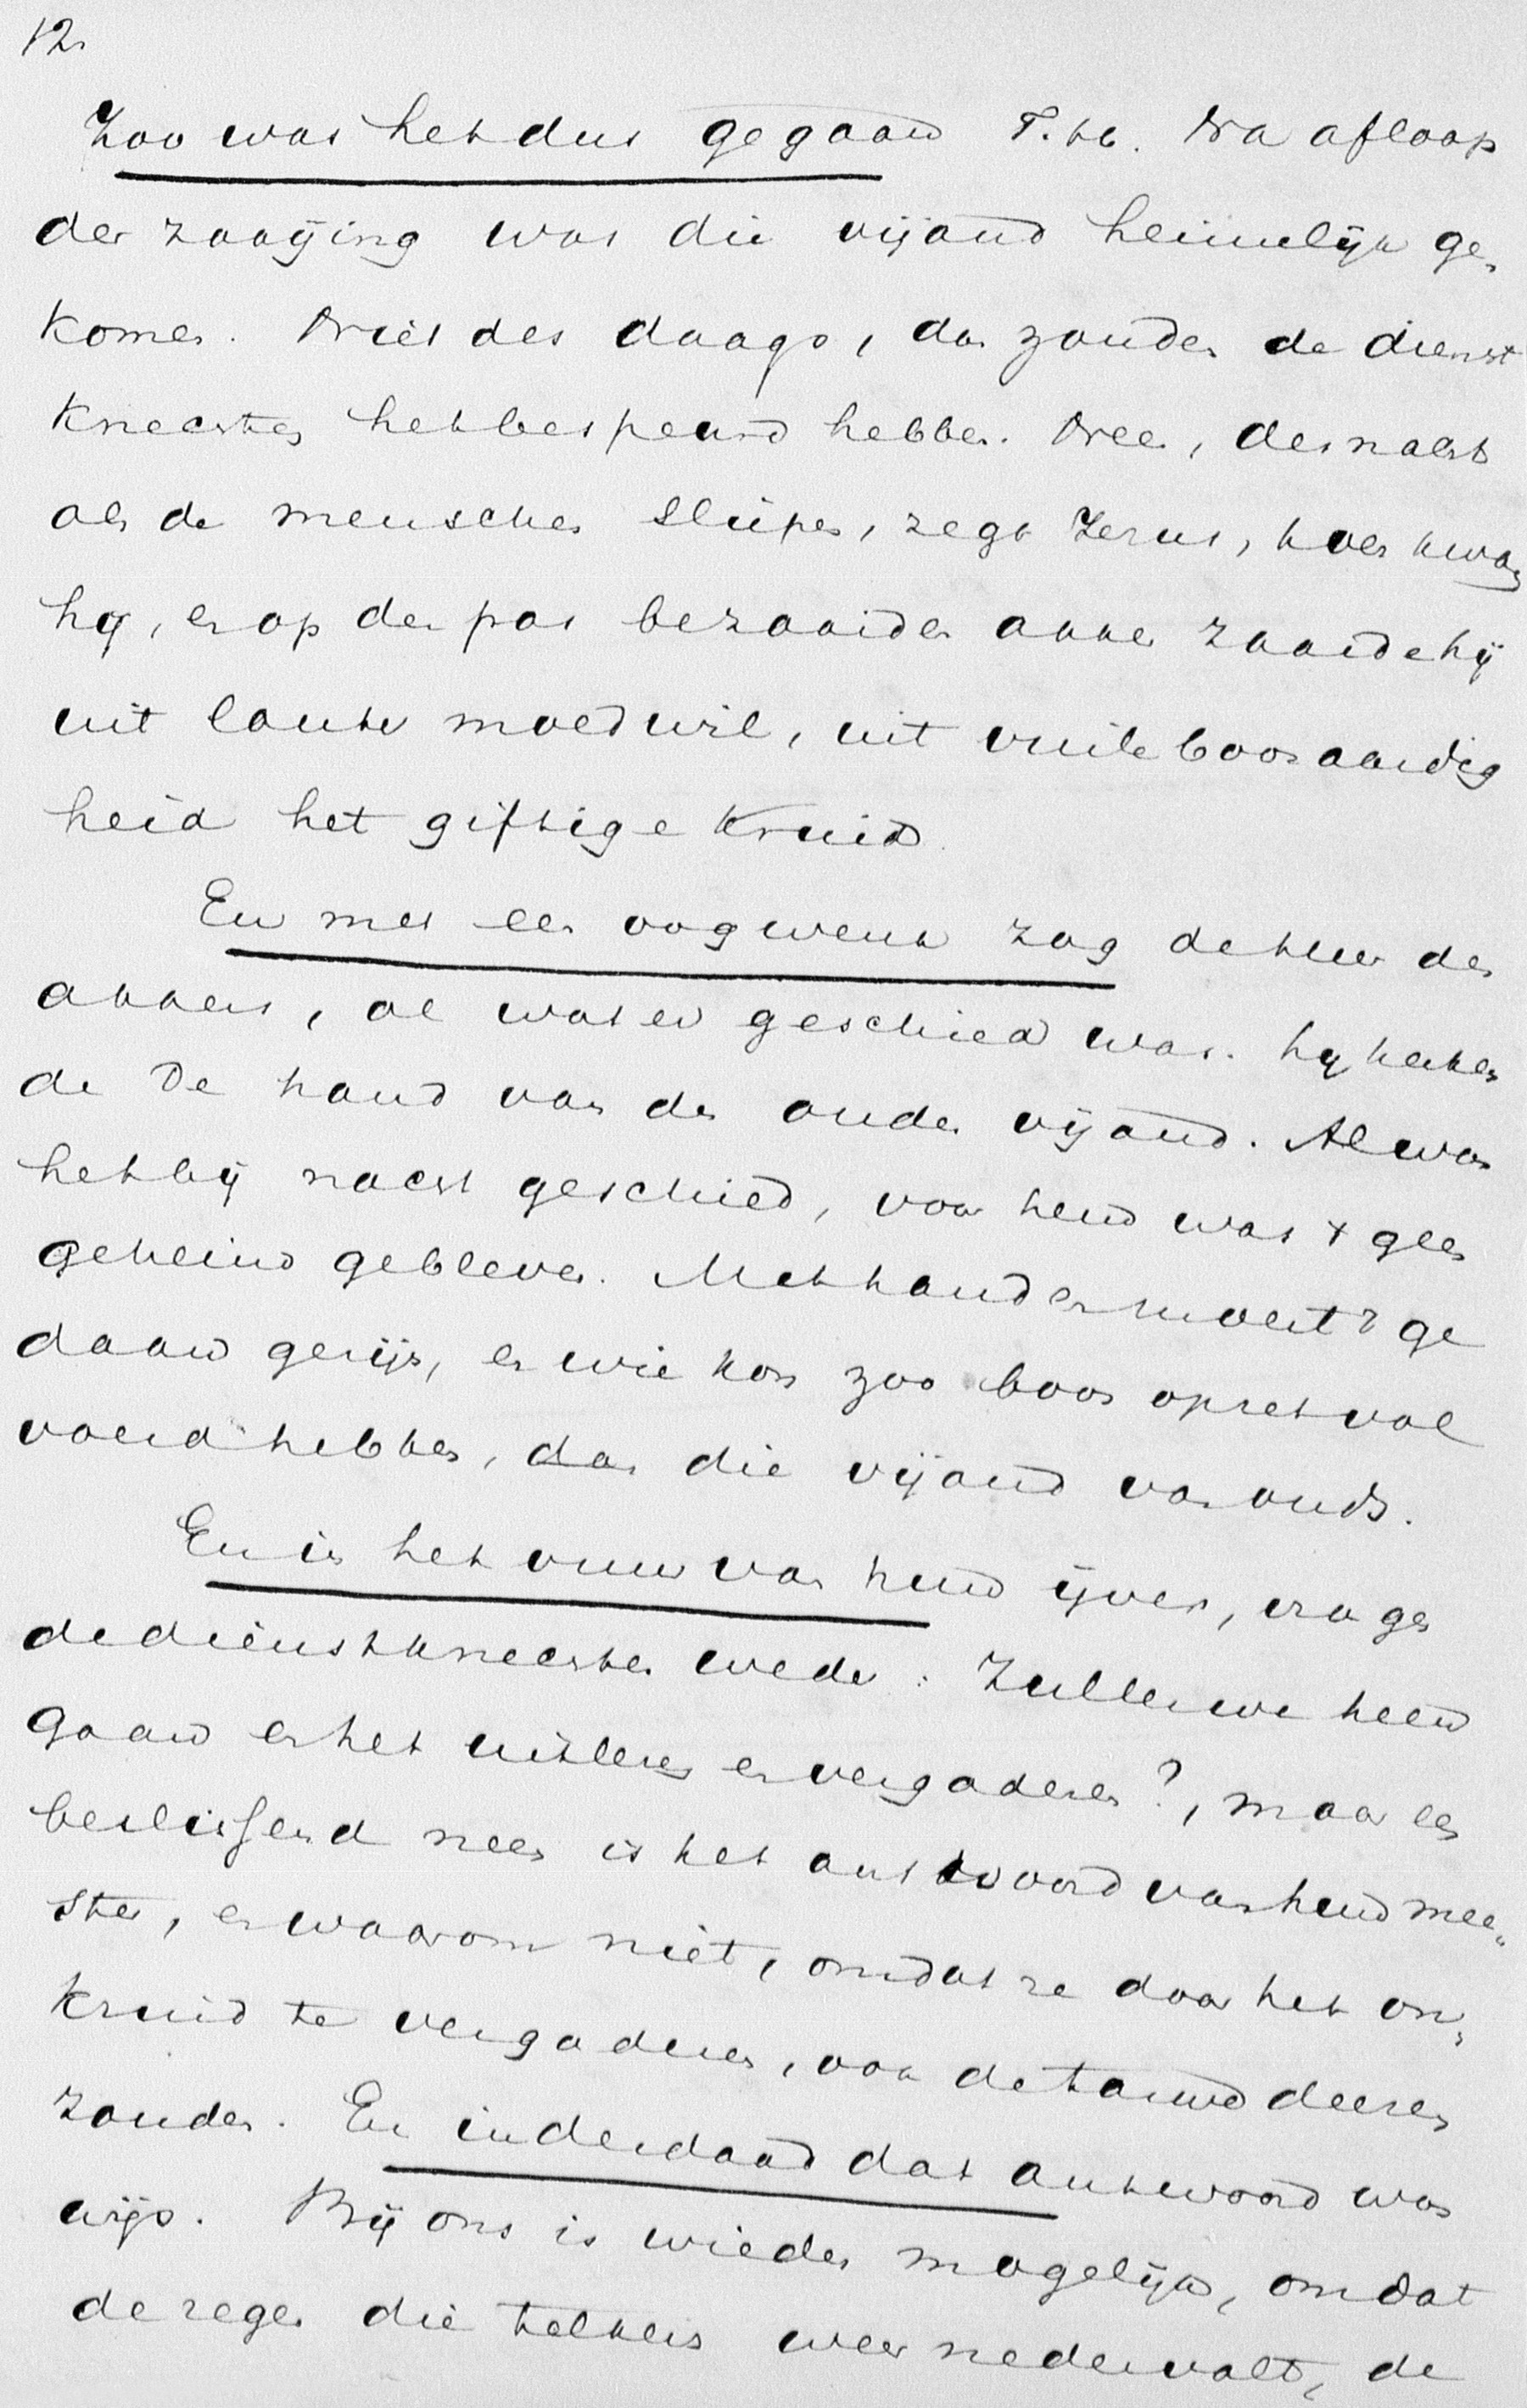 12.
Zoo was het dus gegaan T. h. Na afloop
der zaaijing was die vijand heimelijk ge-
komen. Niet des daags, dan zouden de dienst
knechten het bespeurd hebben. Neen, des nachts
als de menschen sliepen, zegt Jezus, toen kwam
hij, en op den pas bezaaiden akker zaaide hij
uit louter moedwil, uit vuile boosaardig
heid het giftige kruid.
En met een oogwenk zag de heer des
akkers, al wat er geschied was. hij herken
de de hand van den ouden vijand. Al was
het bij nacht geschied, voor hem was 't geen
geheim gebleven. Met handen moest 't ge
daan zijn, en wie kon zoo boos opzet vol
voerd hebben, dan die vijand van ouds.
En in het vuur van hun ijver, vragen
de dienstknechten weder: Zullen we heen
gaan en het uitlezen en vergaderen?, maar een
beslissend neen is het antwoord van hun mee-
ster, en waarom niet, omdat ze door het on-
kruid te vergaderen, ook de tarwe deeren
zouden. En inderdaad dat antwoord was
wijs. Bij ons is wieden mogelijk, omdat
de regen die telkens weer nedervalt, de